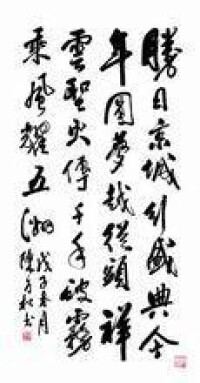 勝日京城引盛典今
年圓夢越從頭祥
雲聖火傳千手破霧
乘風耀五洲 戊子春月
陳書